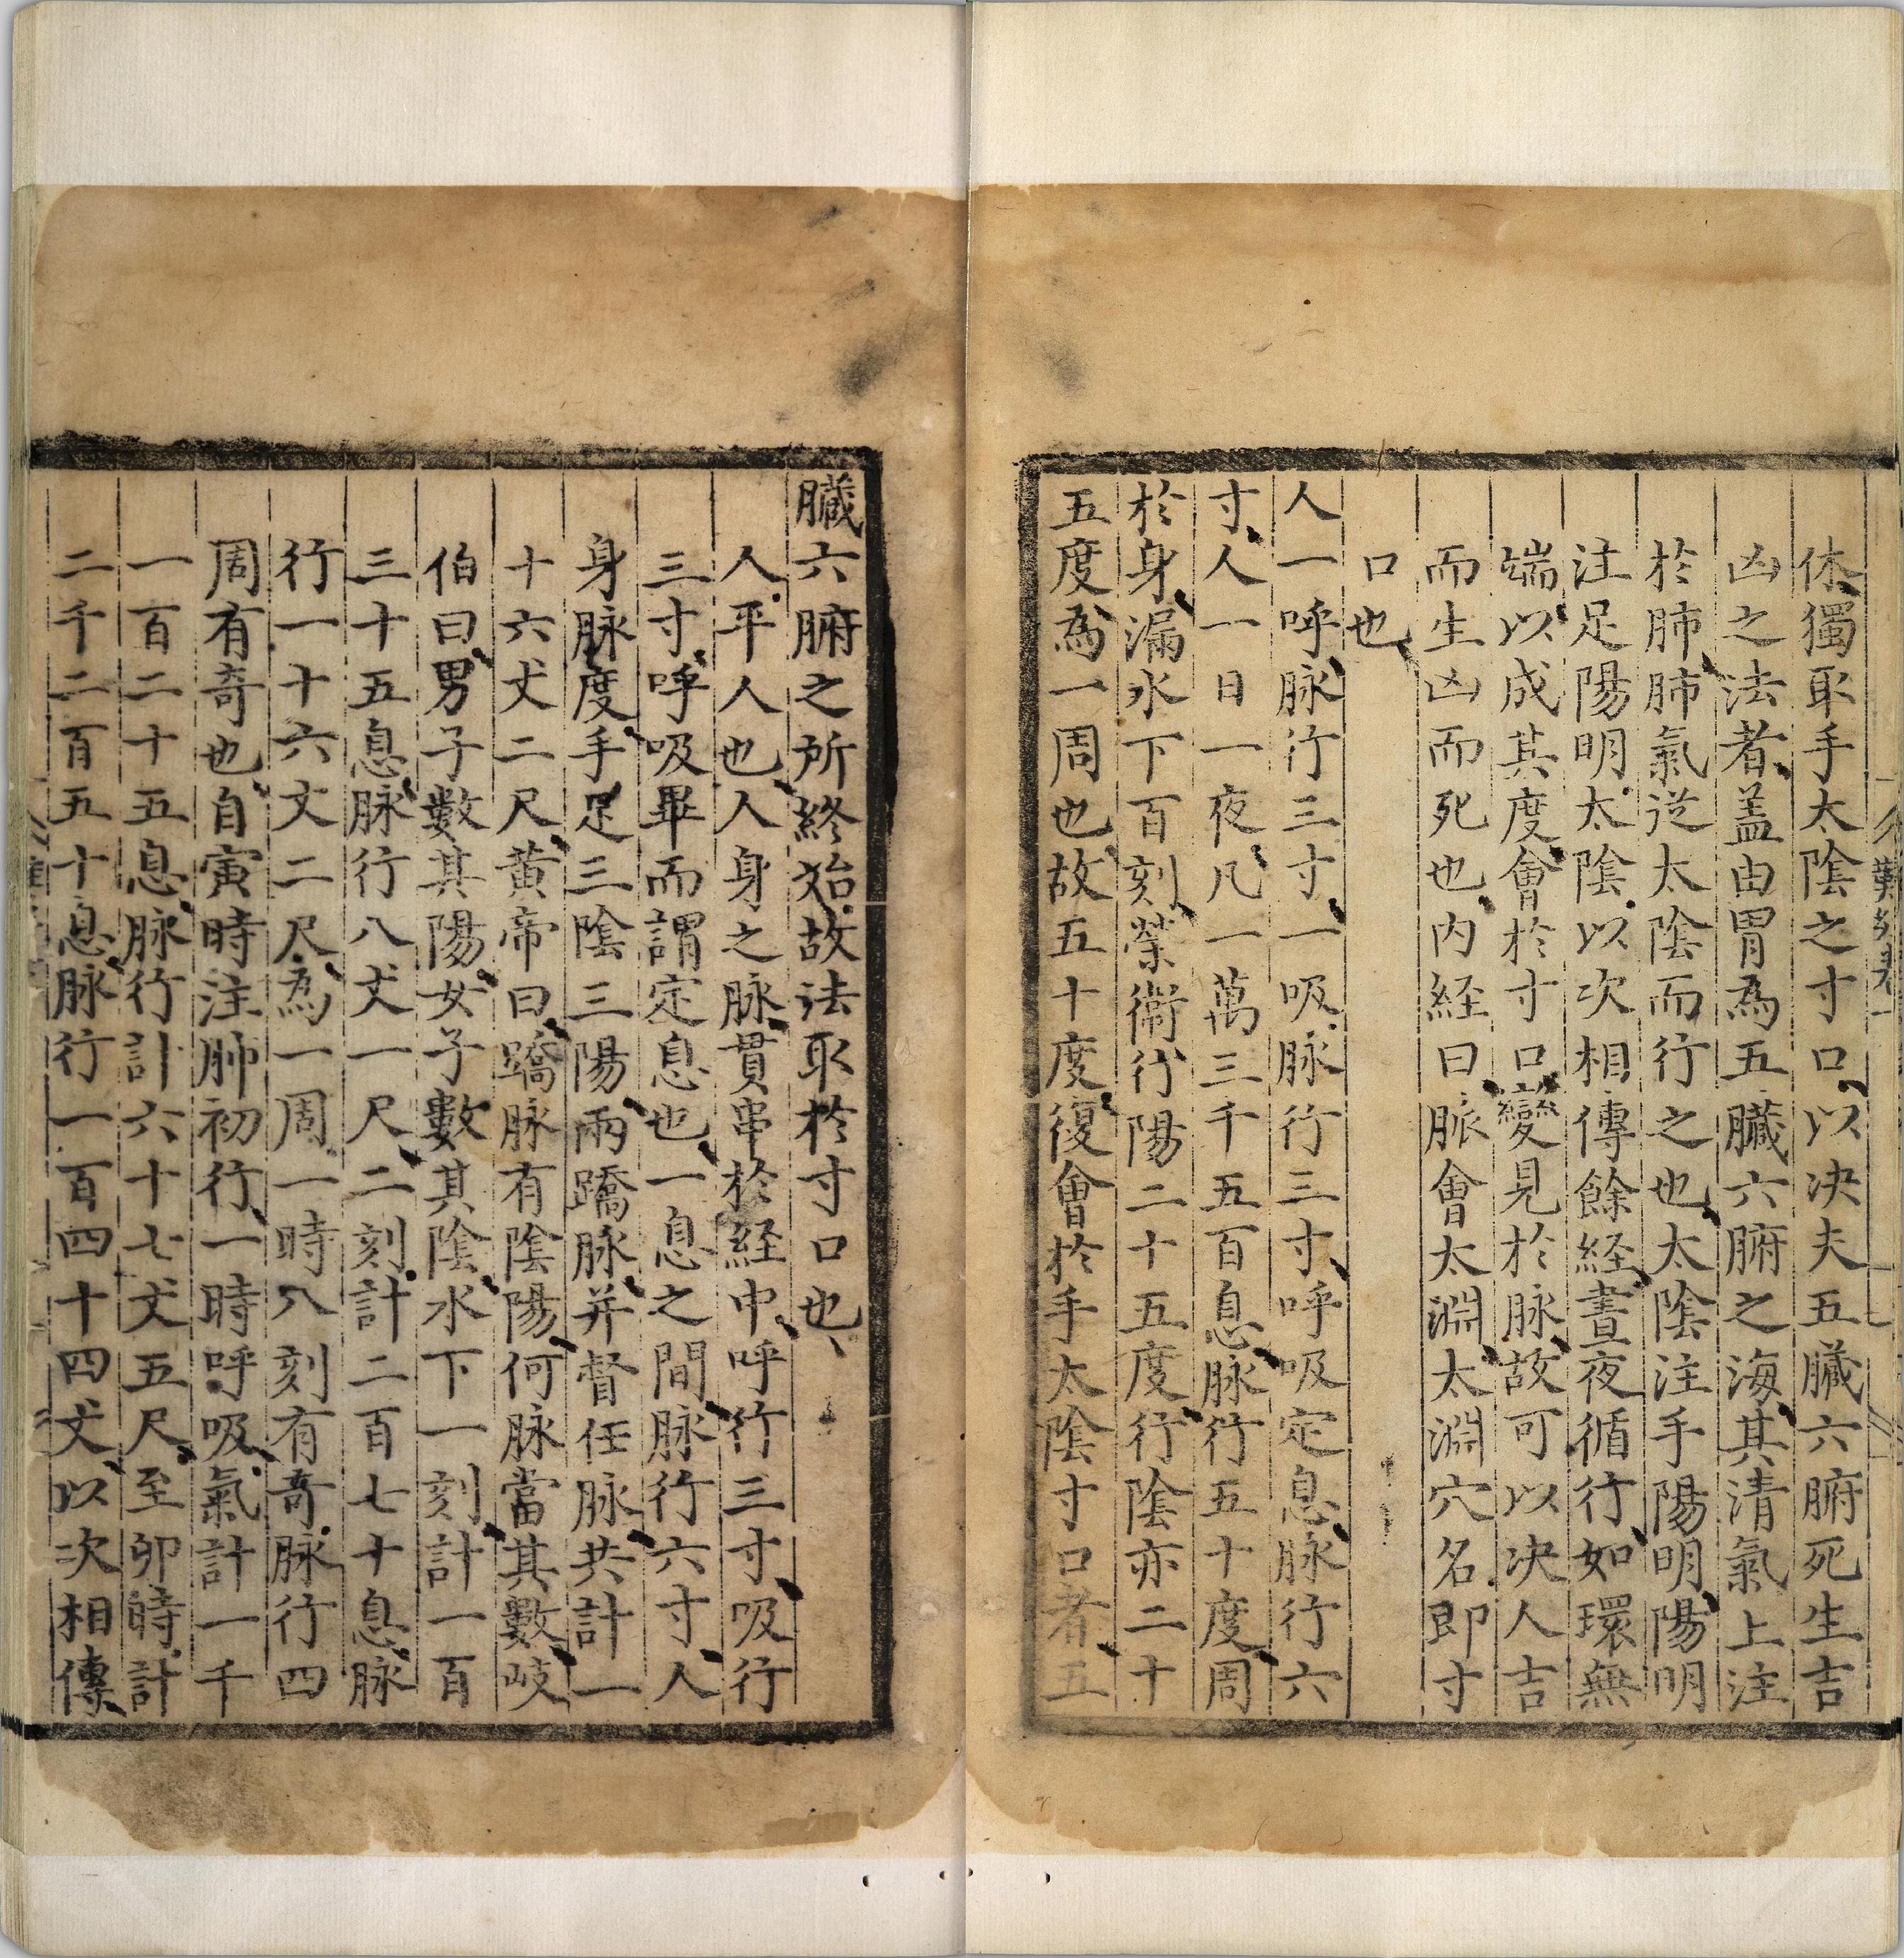 休獨取手太陰之寸口以决夫五臓六腑死生吉
凶之法者盖由胃為五臓六腑之海其清氣上注
於肺肺氣從太陰而行之也太陰注手陽明陽明
注足陽明太陰以次相傳餘経晝夜循行如環無
端以成其度會於寸口變見於脉故可以决人吉
而生凶而死也内経曰脈會太淵太淵穴名即寸
口也
人一呼脉行三寸一吸脉行三寸呼吸定息脉行六
寸人一日一夜凡一萬三千五百息脉行五十度周
於身漏水下百刻榮衛行陽二十五度行陰亦二十
五度為一周也故五十度復會於手太陰寸口者五
臓六腑之所終始故法取於寸口也
人平人也人身之脉貫串於経中呼行三寸吸行
三寸呼吸畢而謂定息也一息之間脉行六寸人
身脉度手足三陰三陽兩蹻脉并督任脉共計一
十六丈二尺黄帝曰蹻脉有陰陽何脉當其數岐
伯曰男子數其陽女子數其陰水下一刻計一百
三十五息脉行八丈一尺二刻計二百七十息脉
行一十六丈二尺為一周一時八刻有奇脉行四
周有奇也自寅時注肺初行一時呼吸氣計一千
一百二十五息脉行計六十七丈五尺至卯時計
二千二百五十息脉行一百四十四丈以次相傳